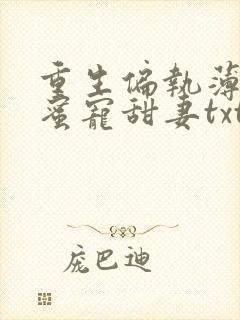 重生偏執薄
蜜寵甜妻txt
庞巴迪